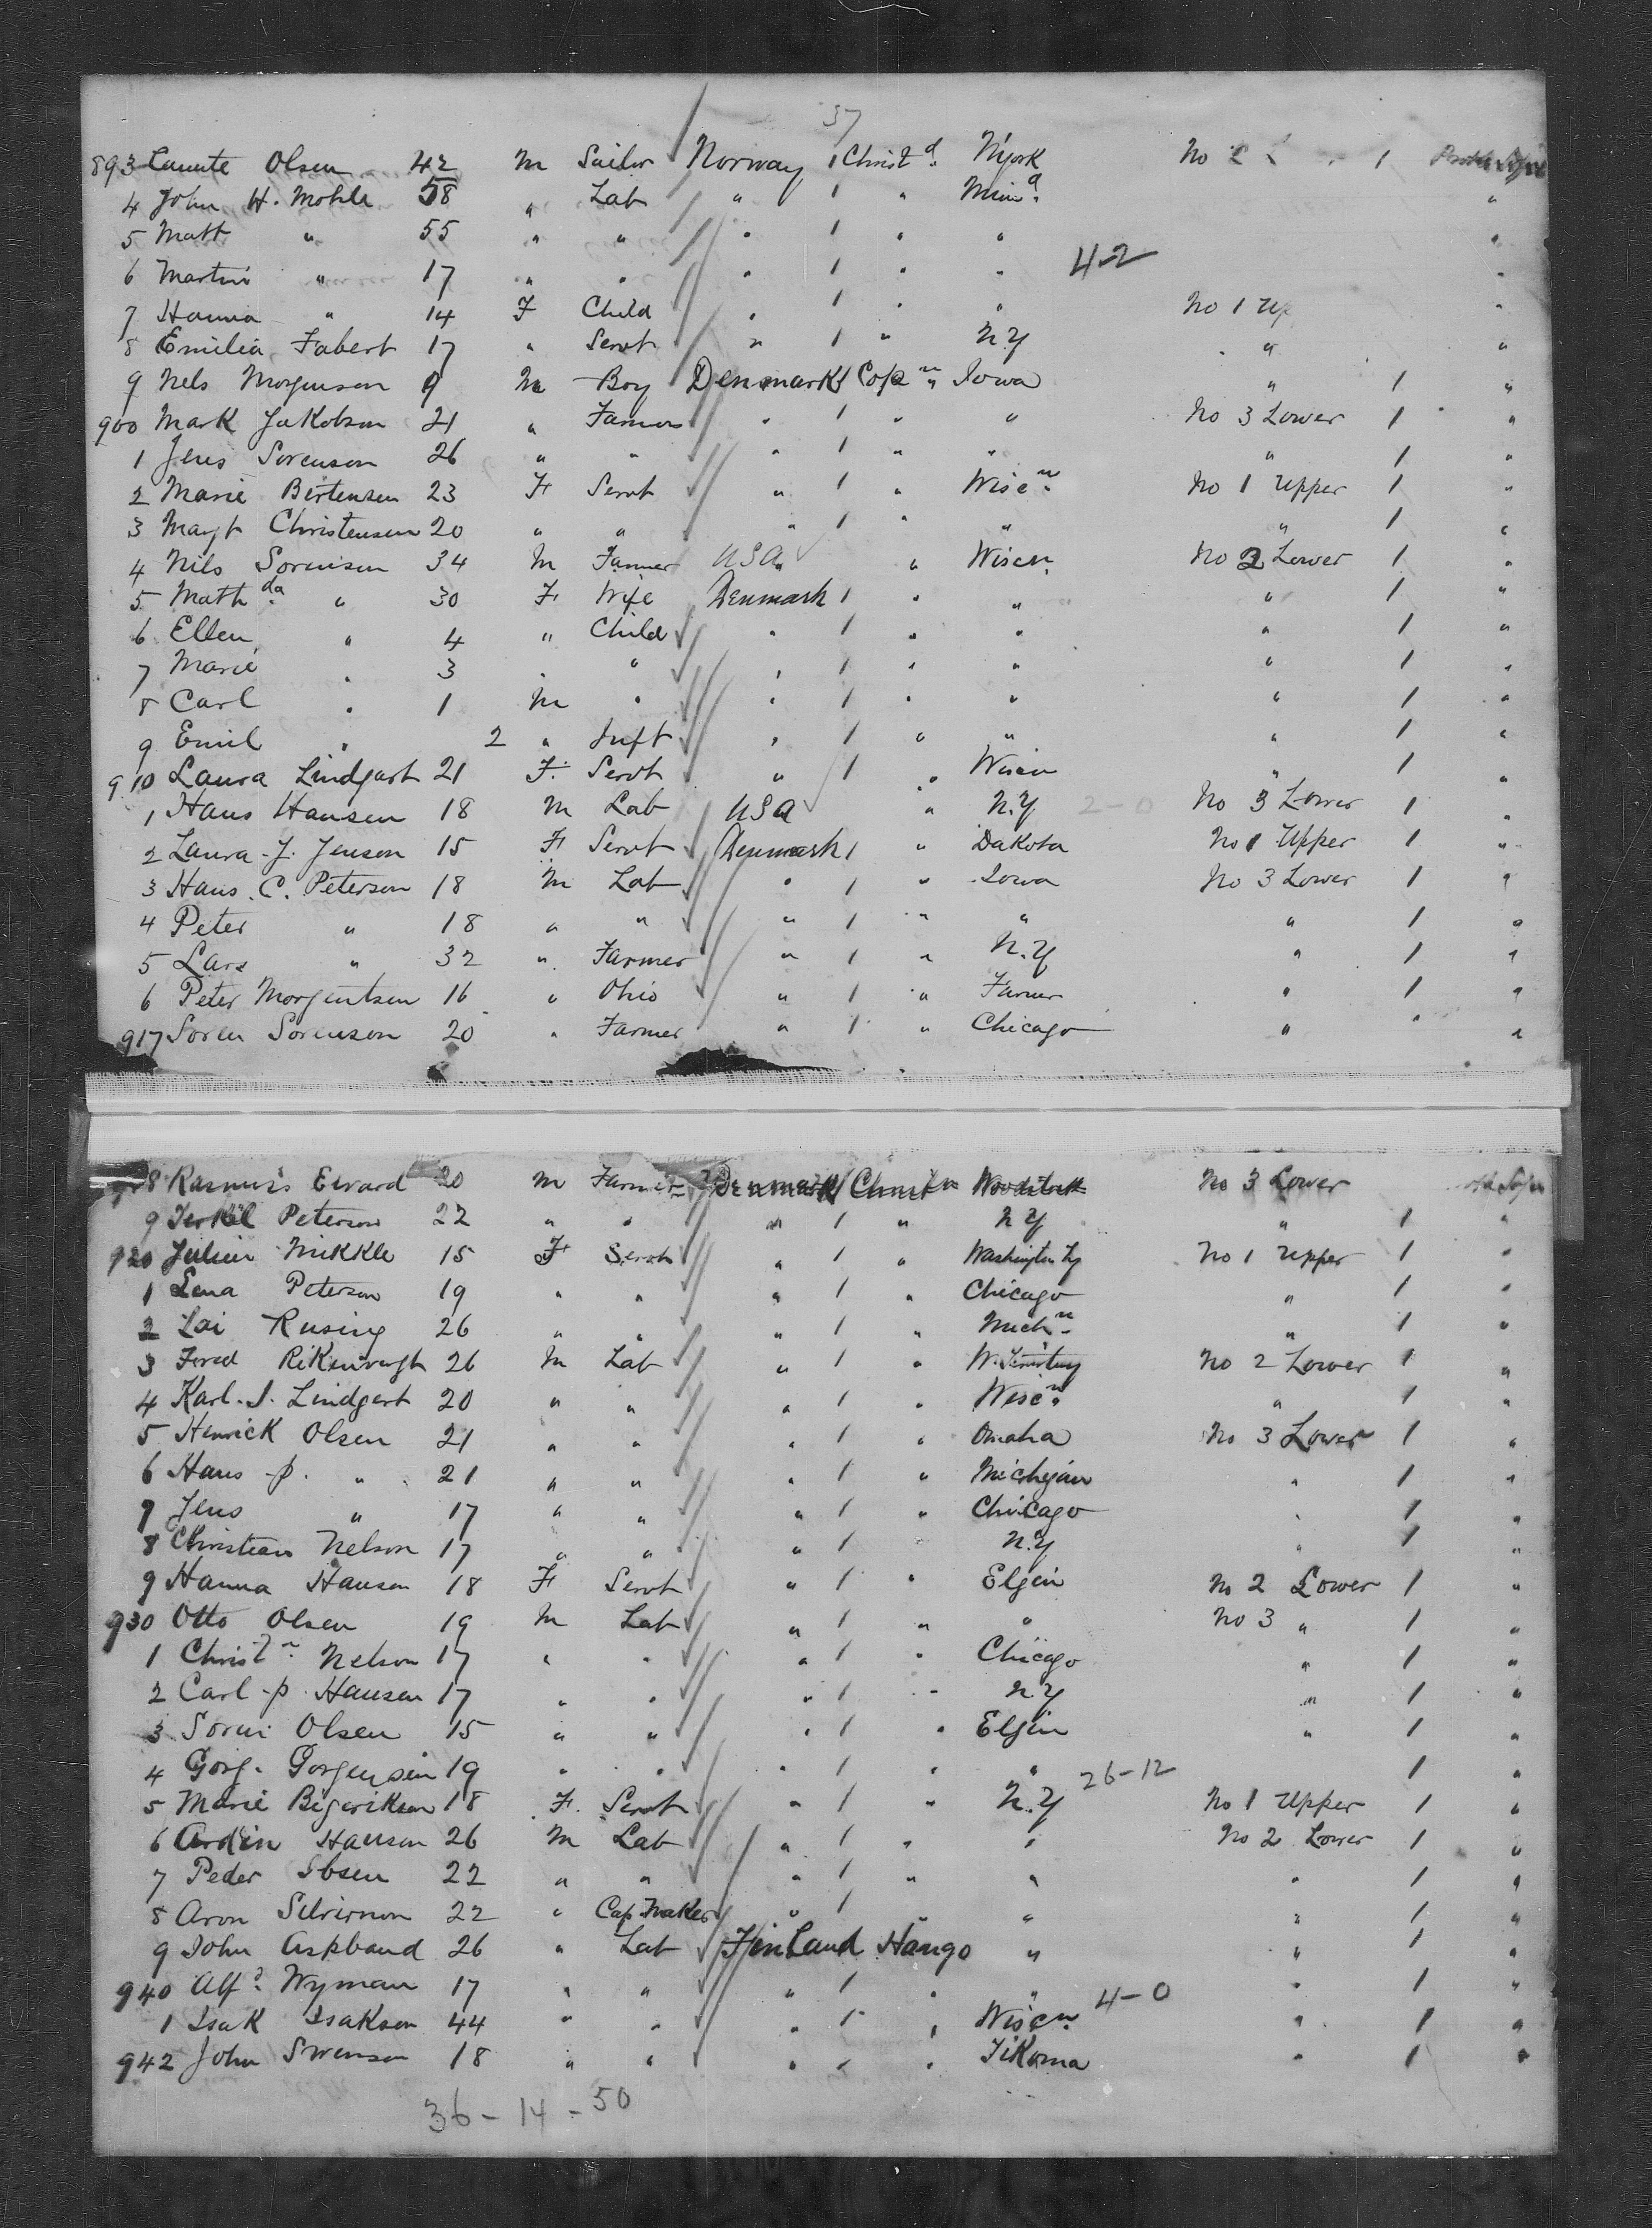 37
893 Caunte Olsen 42 M Sailor Norway 1 Christ d. N'york No 2 1
4 John H. Mohle 58 " Lab " 1 " Minn a.
5 Matt " 55 " " " 1 " "
6 Martin " 17 " " " 1 " " 4-2
7 Hanna " 14 F Child " 1 " " No 1 Up "
8 Emilia Fabert 17 " Servt " 1 " N.Y " "
9 Nels Morgenson 9 M Boy Denmark 1 Cop n " Iowa " 1 "
900 Mark Jakobson 21 " Farmer " 1 " " No 3 Lower 1 "
1 Jens Sorenson 26 " " " 1 " " " 1 "
2 Marie Bertensen 23 F Servt " 1 " Wisc n. No 1 Upper 1 "
3 Magt Christensen 20 " " " 1 " " " 1 "
4 Nils Sorenson 34 M Farmer USA " Wiscn. No 2 Lower 1 "
5 Math da. " 30 F Wife Denmark 1 " " " 1 "
6 Ellen " 4 " Child " 1 " " " 1 "
7 Marie " 3 " " " 1 " " " 1 "
8 Carl " 1 M " " 1 " " " 1 "
9 Emil " 2 " Inft " 1 " " " 1 "
910 Laura Lindgart 21 F. Servt " 1 " Wiscn " 1 "
1 Hans Hansen 18 M Lab USA " N.Y. 2-0 No 3 Lower 1 "
2 Laura J. Jenson 15 F Servt Denmark 1 " Dakota No 1 Upper 1 "
3 Hans. C. Peterson 18 M Lab " 1 " Iowa No 3 Lower 1 "
4 Peter " 18 " " " 1 " " " 1 "
5 Lars " 32 " Farmer " 1 " N.Y " 1 "
6 Peter Morgentsen 16 " Ohio " 1 " Farmer " 1 "
917 Soren Sorenson 20 " Farmer " 1 " Chicago " " "
8 Rasmus Evard 20 M Farmer Denmark 1 Woodstock No 3 Lower
9 Terkel Peterson 22 " " " 1 " N Y " 1 "
920 Julien Mikkle 15 F Servt " 1 " Washington Ty No 1 Upper 1 "
1 Lena Peterson 19 " " " 1 " Chicago " 1 "
2 Lai Rusing 26 " " " 1 " Mich n. " 1 "
3 26 M Lab " 1 " No 2 Lower 1 "
4 Karl. J. Lindgert 20 " " " 1 " Wisc n. " 1 "
5 Henrick Olsen 21 " " " 1 " Omaha No 3 Lower 1 "
6 Hans p. " 21 " " " 1 " Michigan " 1 "
7 Jens " 17 " " " 1 " Chicago " 1 "
8 Christian Nelson 17 " " " 1 " N.Y " 1 "
9 Hanna Hansen 18 F Servt " 1 " Elgin No 2 Lower 1 "
930 Otto Olsen 19 M Lab " 1 " " No 3 " 1 "
1 Christ n. Nelson 17 " " " 1 " Chicago " 1 "
2 Carl p. Hansen 17 " " " 1 " N.Y " 1 "
3 Soren Olsen 15 " " " 1 " Elgin " 1 "
4 Gorg. Gorgensen 19 " " " 1 " " 26-12 1 "
5 Marie Bigerikson 18 F. Servt " 1 " N.Y No 1 Upper 1 "
6 Ardin Hanson 26 M Lab " 1 " " No 2 Lower 1 "
7 Peder Ibsen 22 " " " 1 " " " 1 "
8 Aron Silvirnon 22 " Cap Maker " 1 " " " 1 "
9 John Aspband 26 " Lab Finland Hango " " 1 "
940 Alf d. Wyman 17 " " " 1 " " 4-0 " 1 "
1 Isak Isakson 44 " " " 1 " Wiscn. " 1 "
942 John Swenson 18 " " " 1 " Tikoma " 1 "
36-14-50